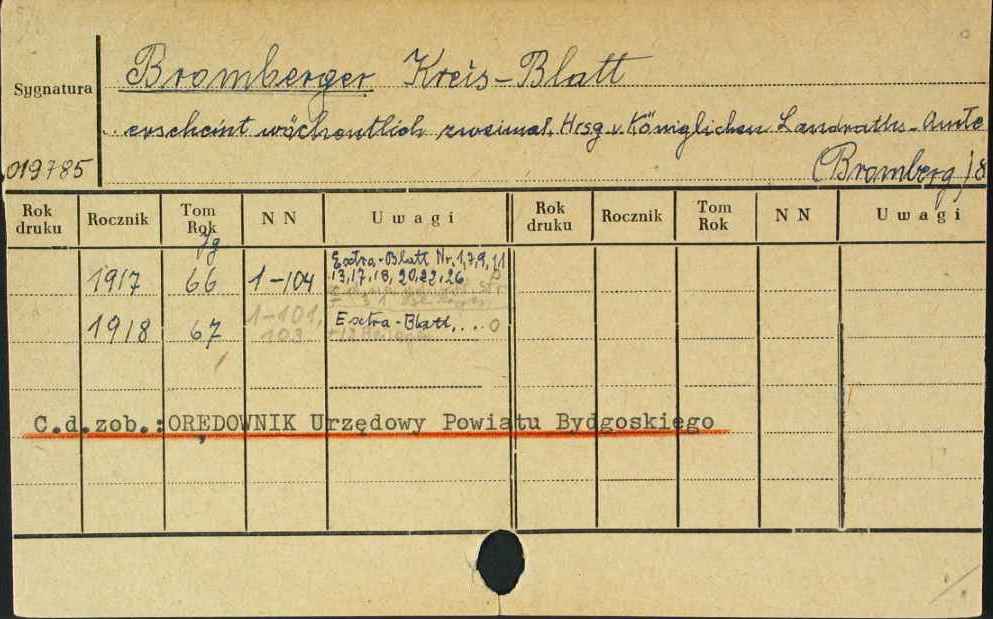 Bromberger Kreis-Blatt
Sygnatura
erscheint wöchentlich zweimal. Hrsg. v. Königlichen Landraths-Amte
019785
(Bromberg) 8
Rok druku Rocznik Tom Rok N N Uwagi Rok druku Rocznik Tom Rok N N Uwagi
Jg
1917 66 1-104 Extra-Blatt Nr. 1,7,9,11
13,17,18,20,22,26
1918 67 1-101, 103 Extra-Blatt, ... 0
C.d.zob.: ORĘDOWNIK Urzędowy Powiatu Bydgoskiego